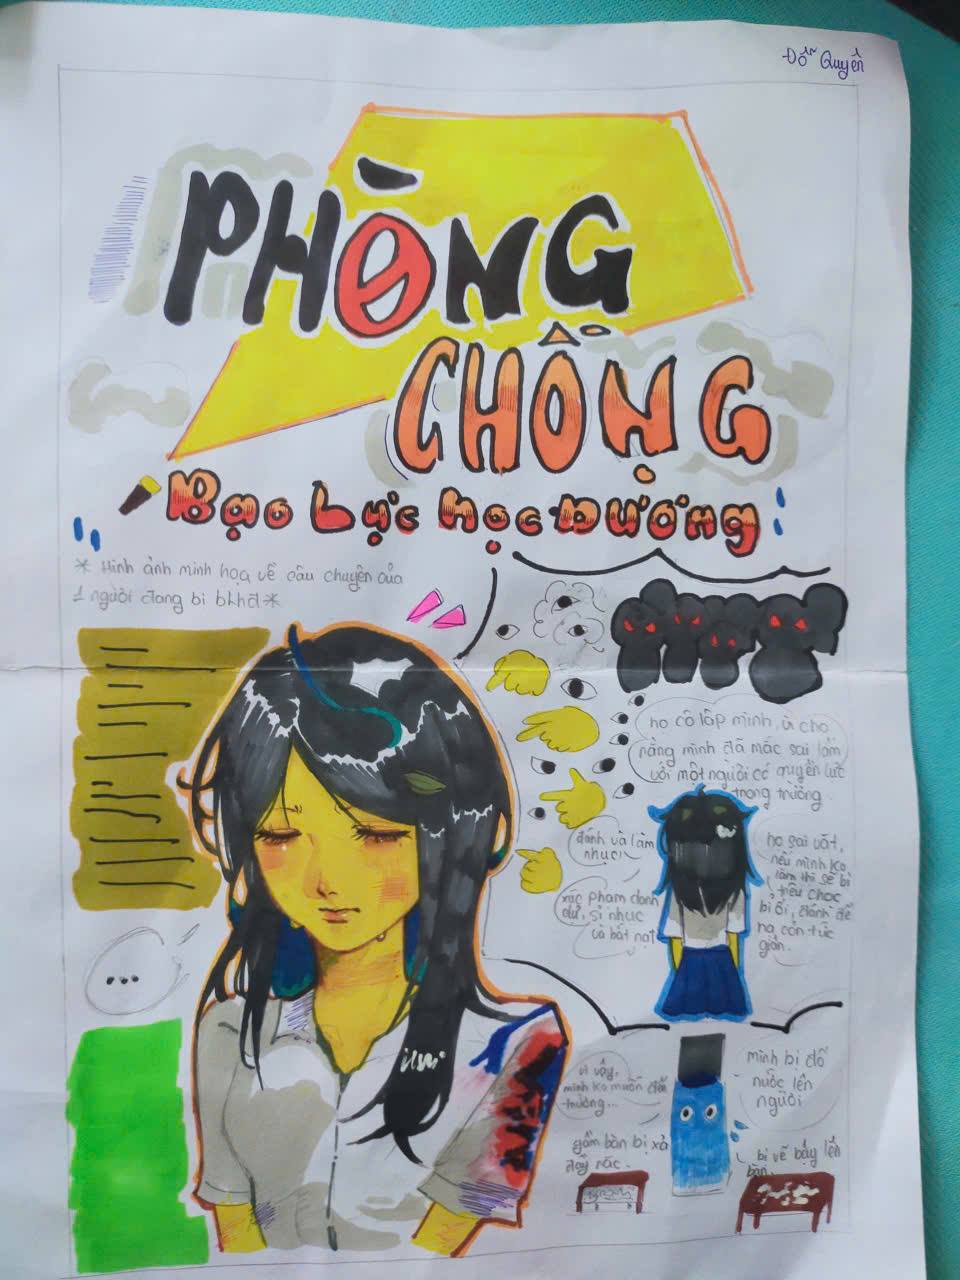 Đỗ Quyên
PHÒNG
CHỐNG
Bạo Lực Học Đường
* Hình ảnh minh hoạ về câu chuyện của
1 người đang bị blhđ *
họ cô lập mình, vì cho
rằng mình đã mắc sai lầm
với một người có quyền lực
trong trường.
đánh và làm
nhục
xúc phạm danh
dự, sỉ nhục
và bắt nạt
họ sai vặt,
nếu mình ko
làm thì sẽ bị
trêu chọc
bị ổi, đánh để
họ cản tức
giận.
...
vì vậy,
mình ko muốn đến
trường...
mình bị đổ
nước lên
người
gầm bàn bị xả
đầy rác.
bị vẽ bậy lên
bàn.